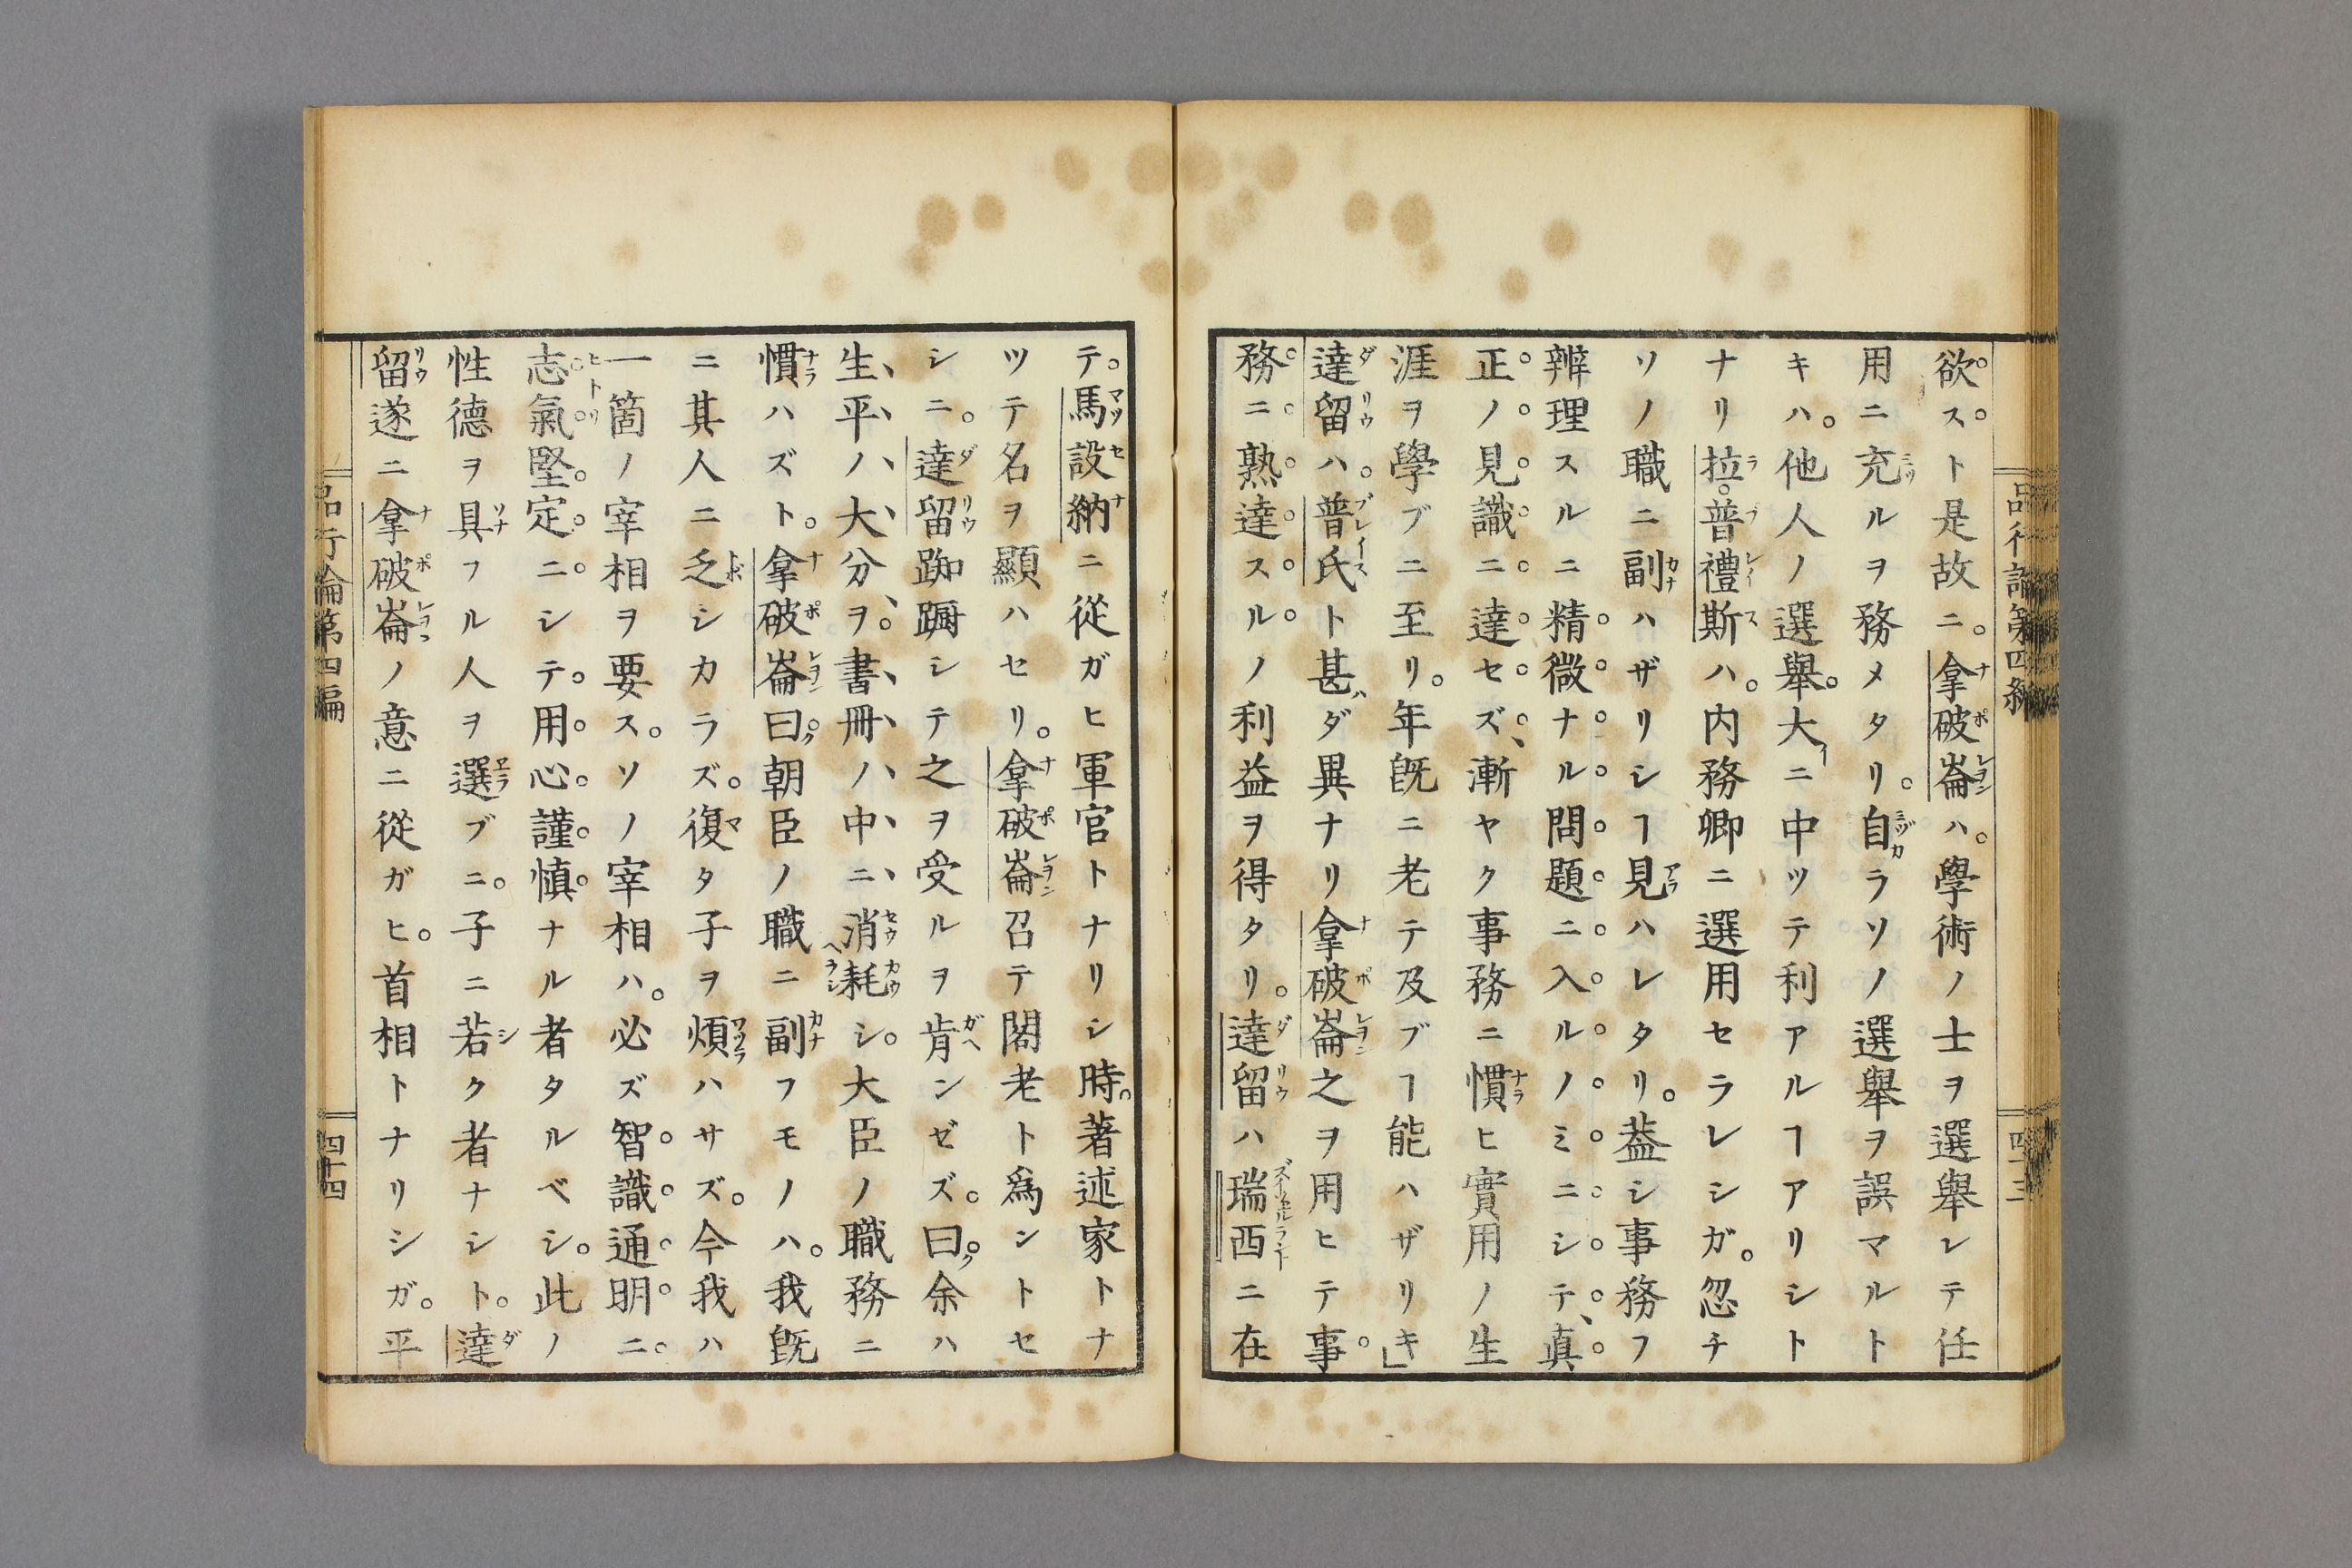 欲スト是故ニ。拿破崙ハ。學術ノ士ヲ選擧シテ任
用ニ充ルヲ務メタリ。自ラソノ選擧ヲ誤マルト
キハ。他人ノ選擧。大ニ中ツテ利アルヿアリシト
ナリ拉。普禮斯ハ。内務卿ニ選用セラレシガ。忽チ
ソノ職ニ副ハザリシヿ見ハレタリ。葢シ事務フ
辨理スルニ精微ナル問題ニ入ルノミニシテ、眞
正ノ見識ニ達セズ、漸ヤク事務ニ慣ヒ實用ノ生
涯ヲ學ブニ至リ。年旣ニ老テ及ブヿ能ハザリキ」
達留ハ。普氏ト甚ダ異ナリ拿破崙之ヲ用ヒテ事
務ニ熟達スルノ利益ヲ得タリ。達留ハ瑞西ニ在
テ。馬設納ニ從ガヒ軍官トナリシ時。著述家トナ
ツテ名ヲ顯ハセリ。拿破崙召テ閣老ト爲ントセ
シニ。達留踟蹰シテ之ヲ受ルヲ肯ンゼズ。曰。余ハ
生平ノ大分ヲ書冊ノ中ニ消耗シ。大臣ノ職務ニ
慣ハズト。拿破崙曰。朝臣ノ職ニ副フモノハ。我旣
ニ其人ニ乏シカラズ。復タ子ヲ煩ハサズ。今我ハ
一箇ノ宰相ヲ要ス。ソノ宰相ハ。必ズ智識通明ニ
志氣堅定ニシテ。用心謹愼ナル者タルベシ。此ノ
性德ヲ具フル人ヲ選ブニ。子ニ若ク者ナシト。達
留遂ニ拿破崙ノ意ニ從ガヒ。首相トナリシガ。平
品行論第四編
四十四